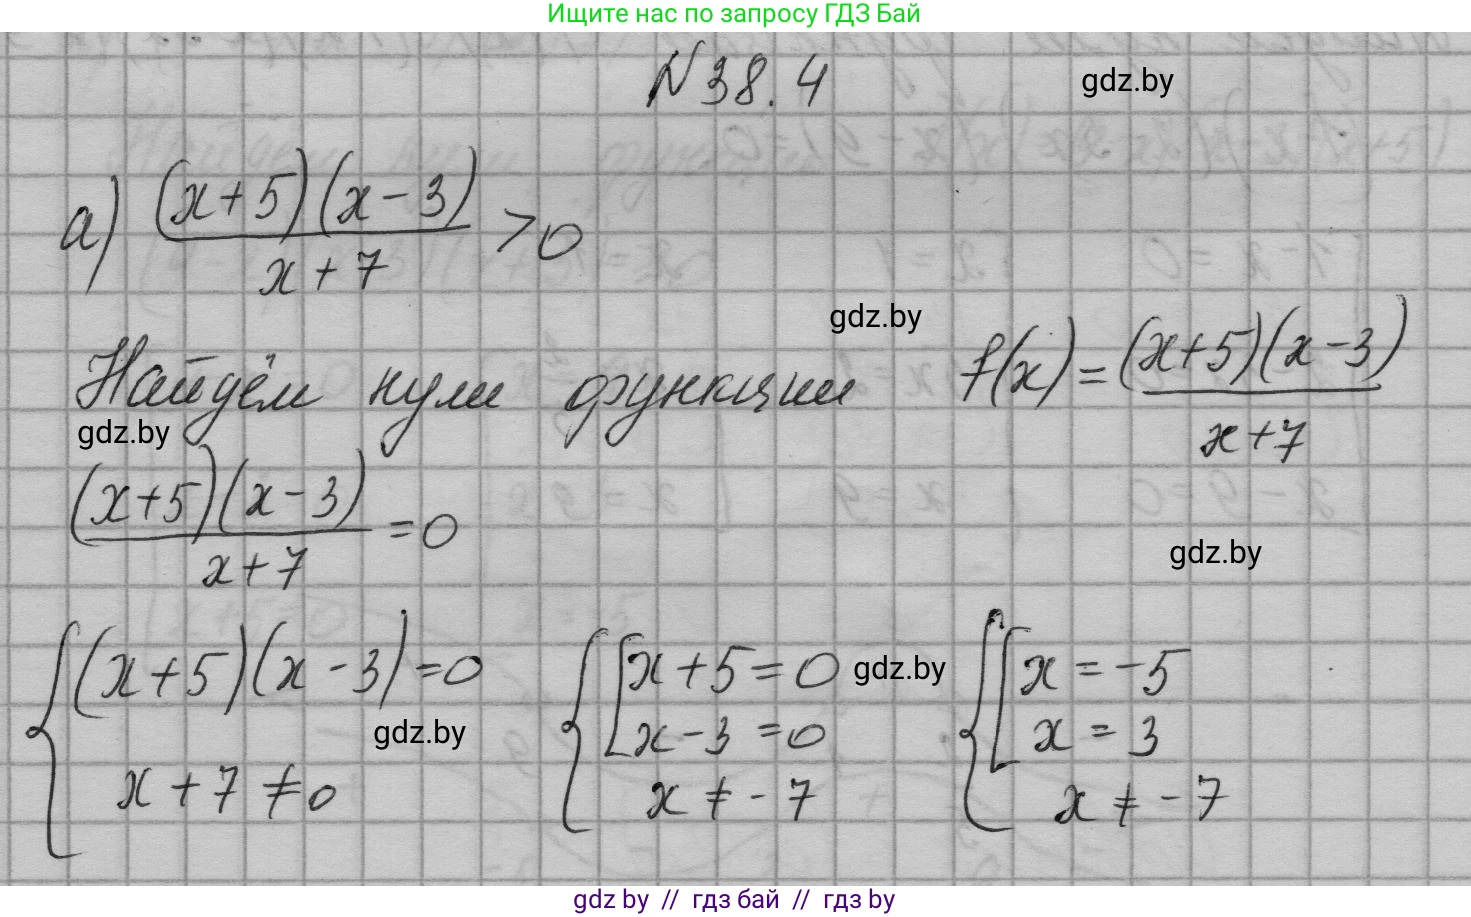 Ищите нас по запросу ГДЗ Бай
N 38.4
gdz.by
а) (x+5)(x-3) / x+7 > 0
gdz.by
Найдём нули функции f(x) = (x+5)(x-3) / x+7
gdz.by
(x+5)(x-3) / x+7 = 0
gdz.by
{ (x+5)(x-3) = 0
x+7 ≠ 0
gdz.by
{ [ x+5 = 0
x-3 = 0
x ≠ -7
gdz.by
{ [ x = -5
x = 3
x ≠ -7
gdz by // гдз бай // гдз by